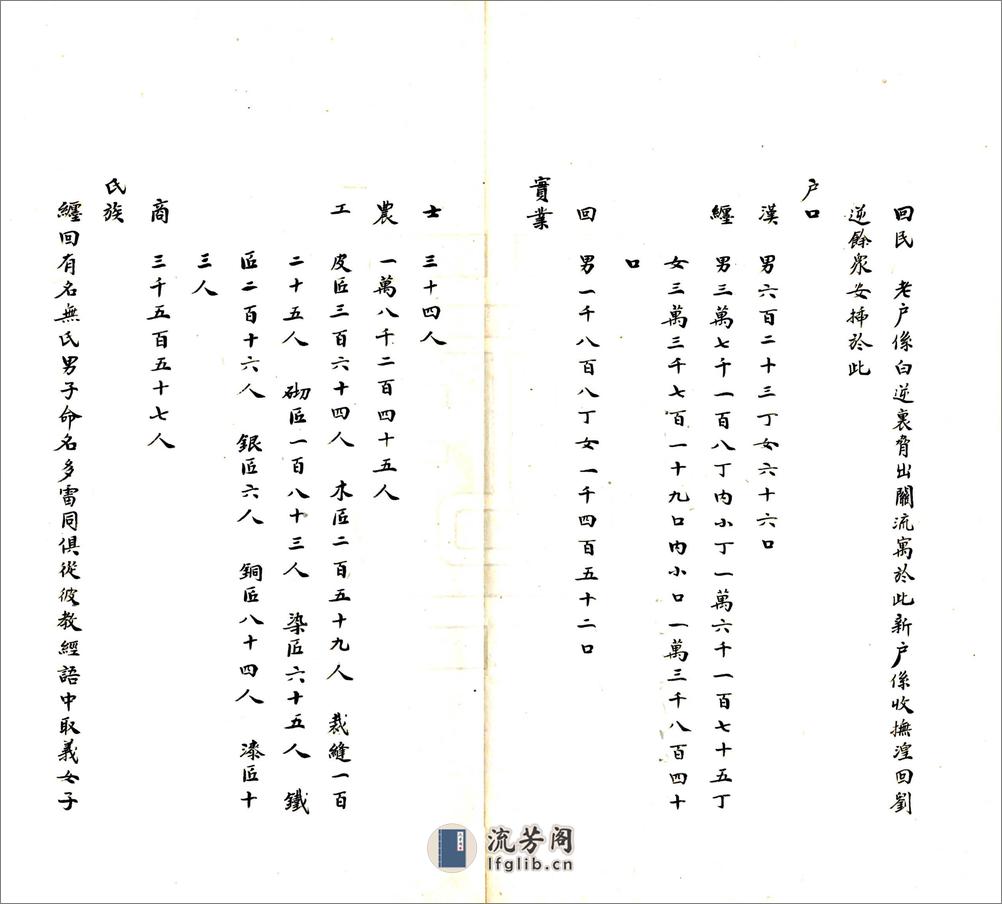 回民　老户係白逆裏脅出關流寓於此新户係收撫湟回劉
逆餘衆安揷於此
户口
漢　男六百二十三丁女六十六口
纏　男三萬七千一百八丁內小丁一萬六千一百七十五丁
女三萬三千七百一十九口內小口一萬三千八百四十
口
回　男一千八百八丁女一千四百五十二口
實業
士　三十四人
農　一萬八千二百四十五人
工　皮匠三百六十四人　木匠二百五十九人　裁縫一百
二十五人　砌匠一百八十三人　染匠六十五人　鐵
匠二百十六人　銀匠六人　銅匠八十四人　漆匠十
三人
商　三千五百五十七人
氏族
纏回有名無氏男子命名多雷同俱從彼教經語中取義女子
流芳阁
lfglib.cn